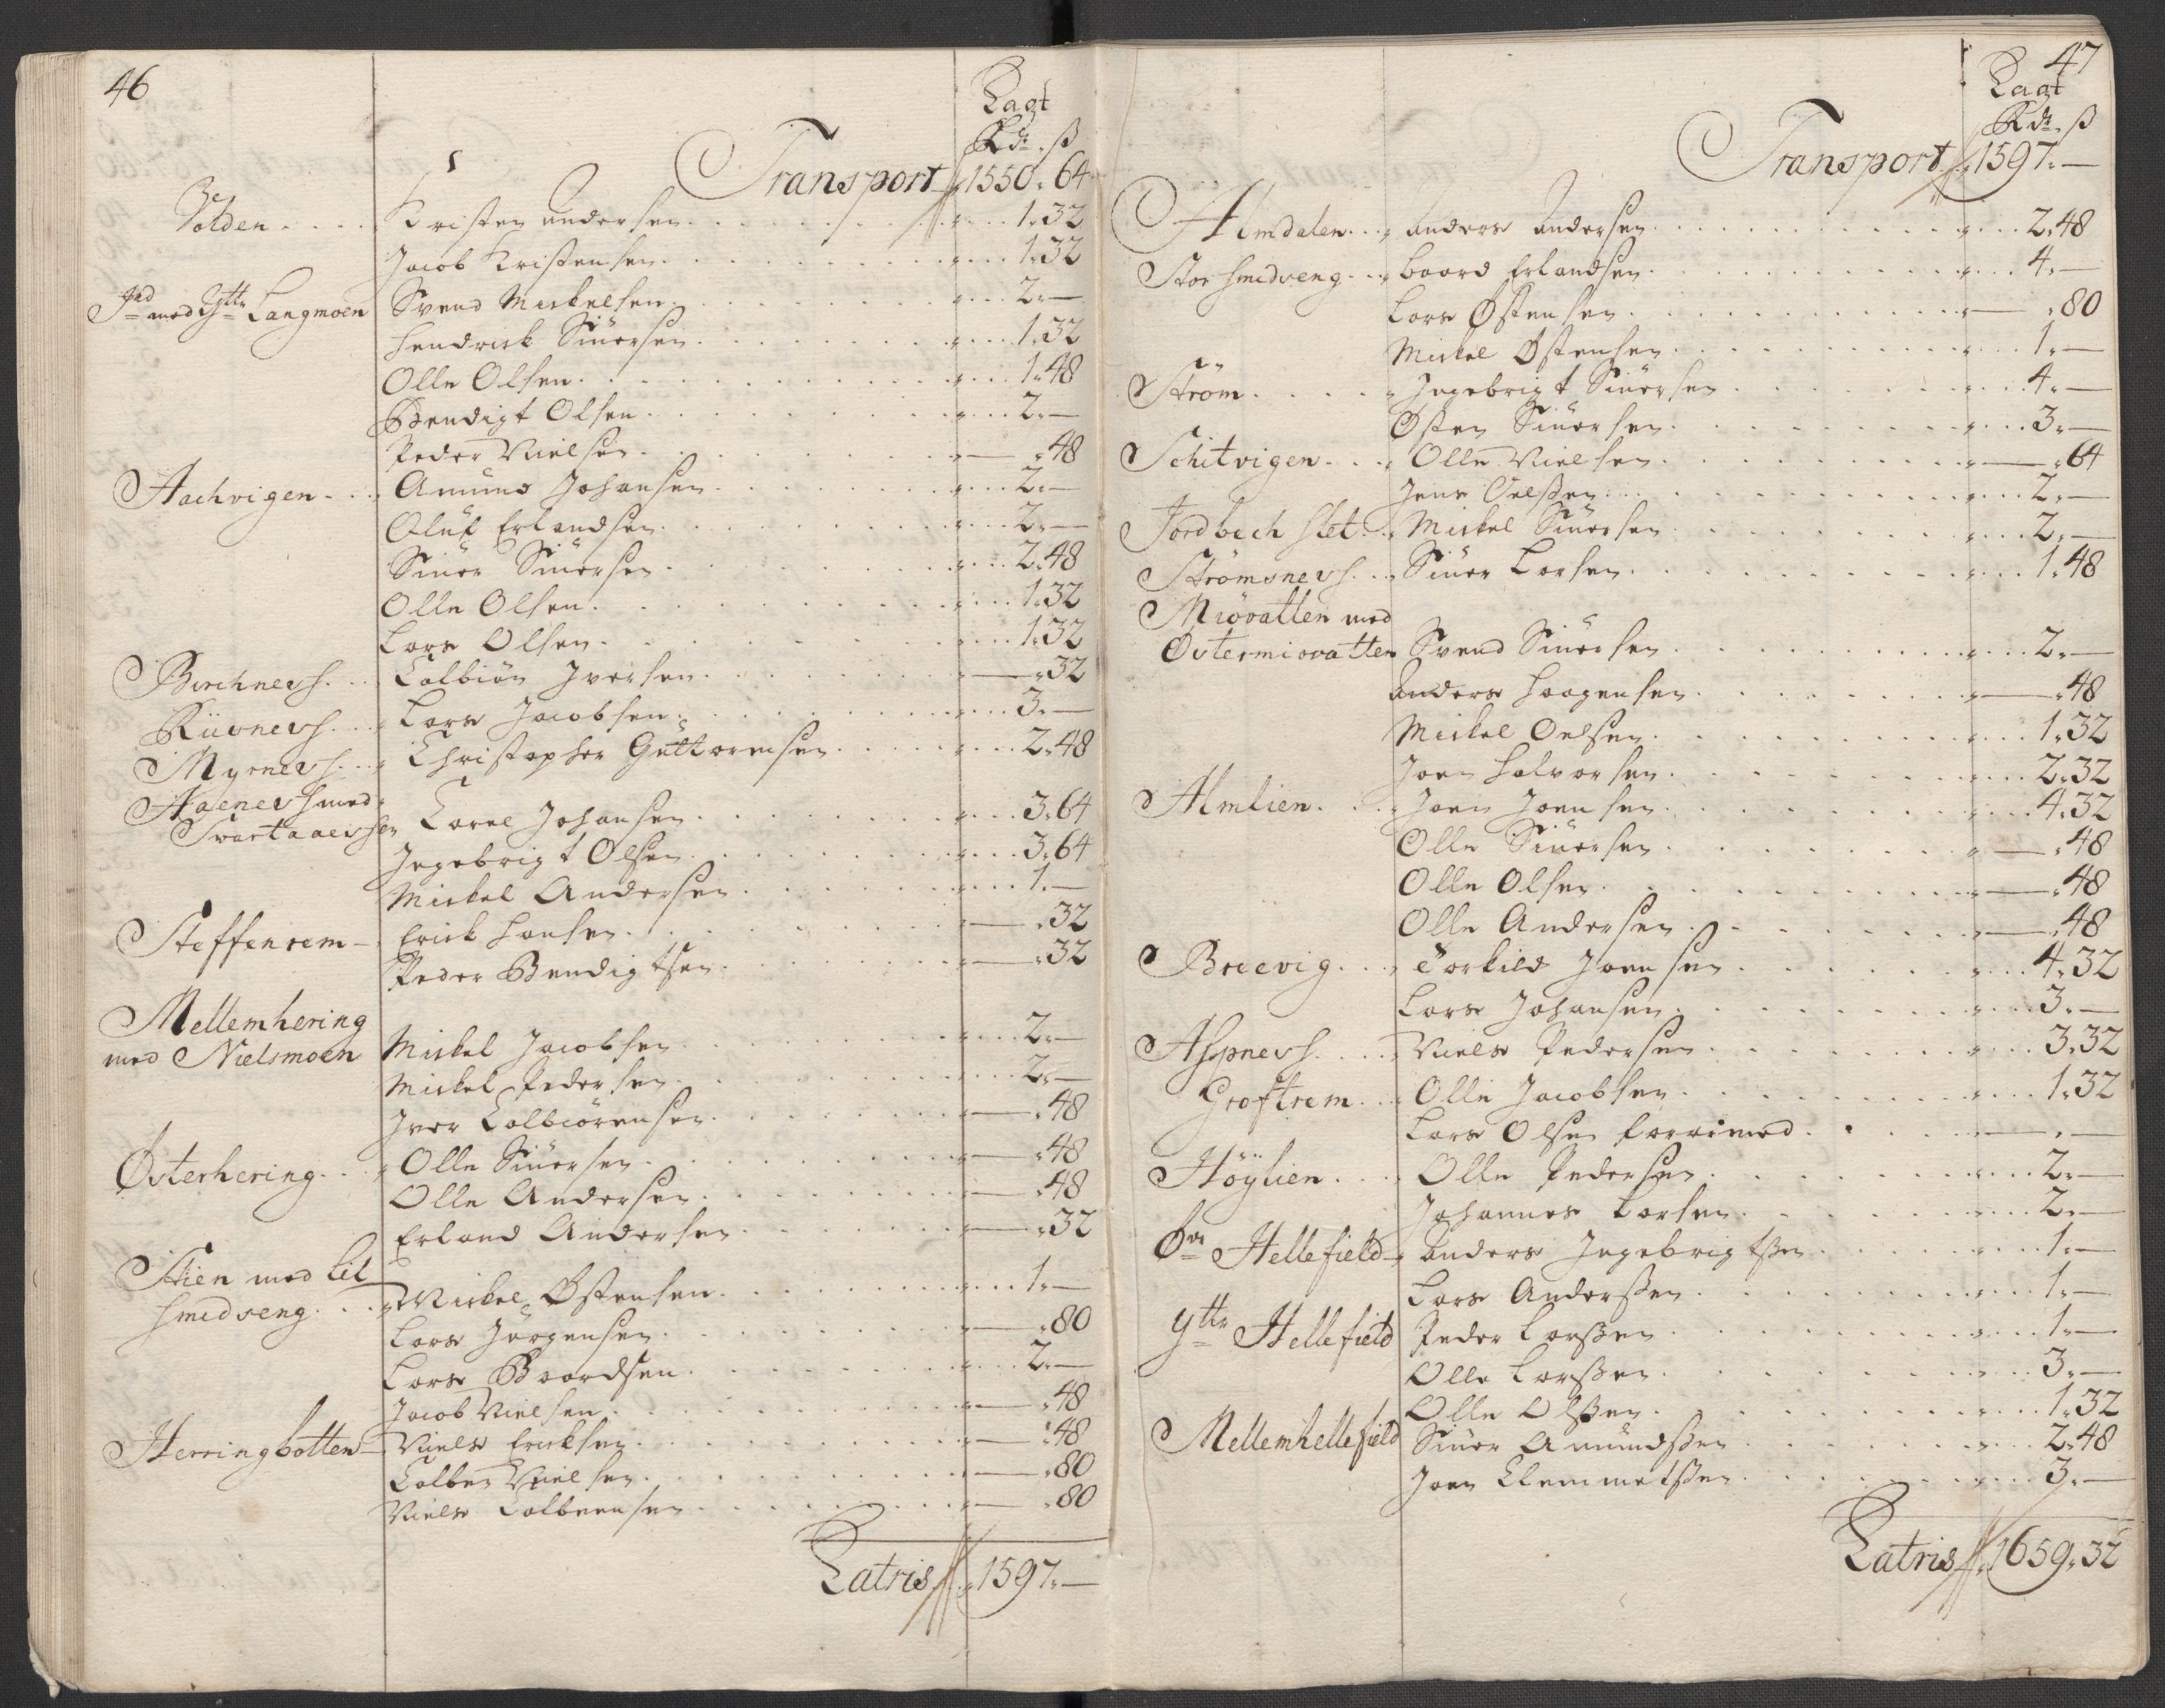 46
Lagt
Rdr. ß
Transport 1550. 64
Volden Kristen Andersen 1.32
Jacob Kristensen 1.32
Ind med Yttr Langmoen Svend Mickelsen 2.—
Hendrick Siuersen 1.32
Olle Olsen 1.48
Bendigt Olsen 2.—
Peder Nielsen — .48
Aachvigen Amund Johansen 2.—
Oluf Erlandsen 2.—
Siuer Siuersen 2.48
Olle Olsen 1.32
Lars Olsen 1.32
Birchnesh Colbiön Iversen — .32
Riivnesh Lars Jacobsen 3.—
Myrnesh Christopher Guttormsen 2.48
Aaenesh med
Svartaaeshen Carel Johansen 3.64
Ingebrigt Olsen 3.64
Mickel Andersen 1.—
Steffenrem Erick Hansen — .32
Peder Bendigtsen — .32
Mellemhering
med Nielsmoen Mickel Jacobsen 2.—
Mickel Pedersen 2.—
Iver Colbiörensen — .48
Østerhering Olle Siuersen — .48
Olle Andersen — .48
Erland Andersen — .32
Stien med Lil
Smedseng Mickel Østensen 1.—
Lars Jörgensen — .80
Lars Baardsen 2.—
Jacob Nielsen — .48
Herringbotten Niels Ericksen — .48
Colben Nielsen — .80
Niels Colbeensen — .80
Latris 1597.—
47
Lagt
Rdr. ß
Transport 1597.—
Almdalen Anders Andersen 2.48
Stor Smedseng Baard Erlandsen 4.—
Lars Østensen — .80
Mickel Østensen 1.—
Ström Ingebrigt Siuersen 4.—
Østen Siuersen 3.—
Schitvigen Olle Nielsen — .64
Jens Oelßen 2.—
Jordbech slet Mickel Siuersen 2.—
Strömsnesh Siuer Larsen 1.48
Miövatten med
Østermiovatten Svend Siuersen 2.—
Anders Haagensen — .48
Mickel Oelsen 1.32
Joen Halvorsen 2.32
Almlien Joen Joensen 4.32
Olle Siuersen — .48
Olle Olsen — .48
Olle Andersen — .48
Breevig Torkild Joensen 4.32
Lars Johansen 3.—
Aspnesh Niels Pedersen 3.32
Groftrem Olle Jacobsen 1.32
Lars Olsen — . —
Höylien Olle Pedersen 2.—
Johannes Larsen 2.—
Øvr Hellefield Anders Ingebrigtßen 1.—
Lars Anderßen 1.—
Yttr Hellefield Peder Larßen 1.—
Olle Larßen 3.—
Olle Olßen 1.32
Mellemhellefield Siuer Amundßen 2.48
Joen Clemmetßen 3.—
Latris 1659.32